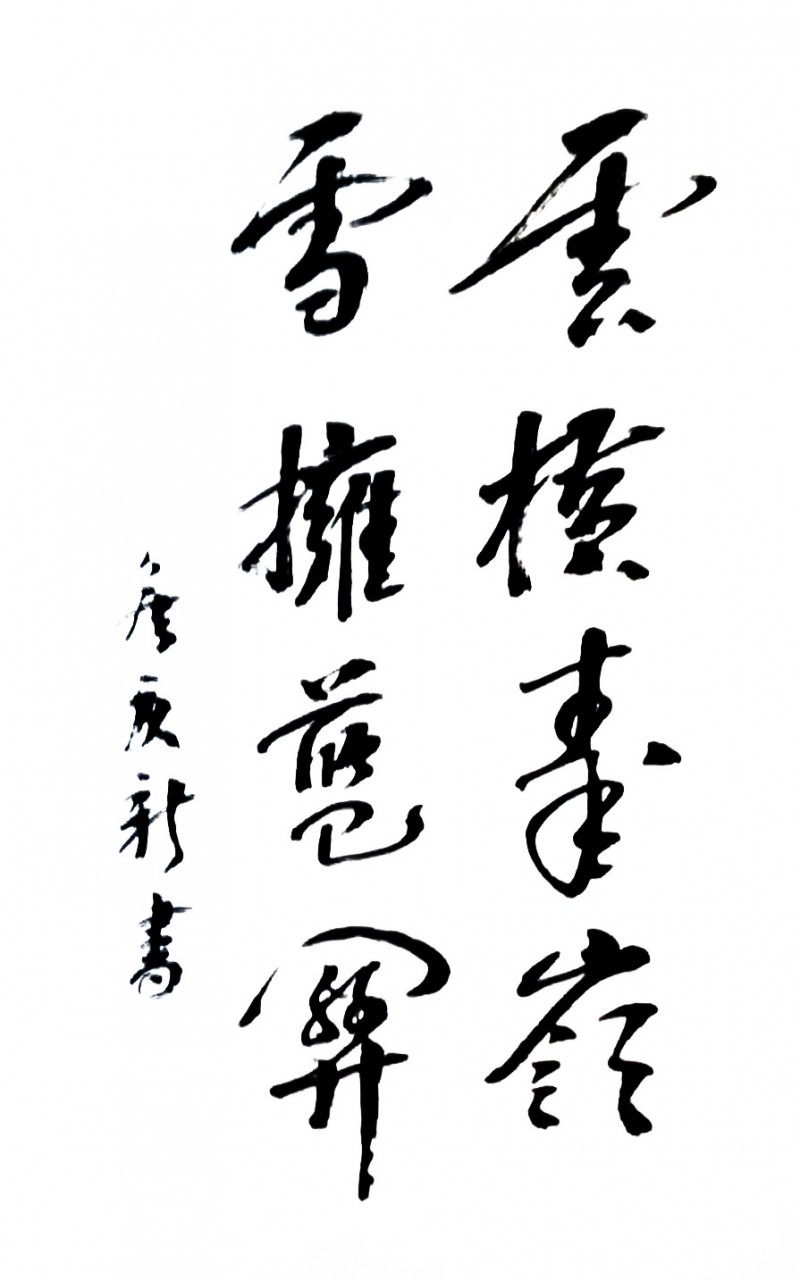 雲橫秦嶺
雪擁藍關
詹庚新書